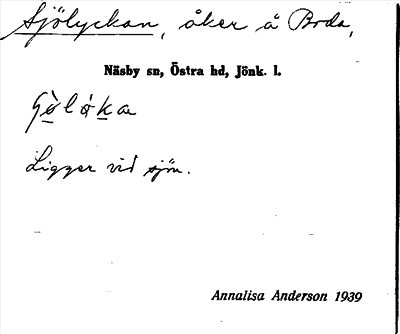 Sjölyckan, åker å Boda,
Näsby sn, Östra hd, Jönk. l.
Ligger vid sjön.
Annalisa Anderson 1939